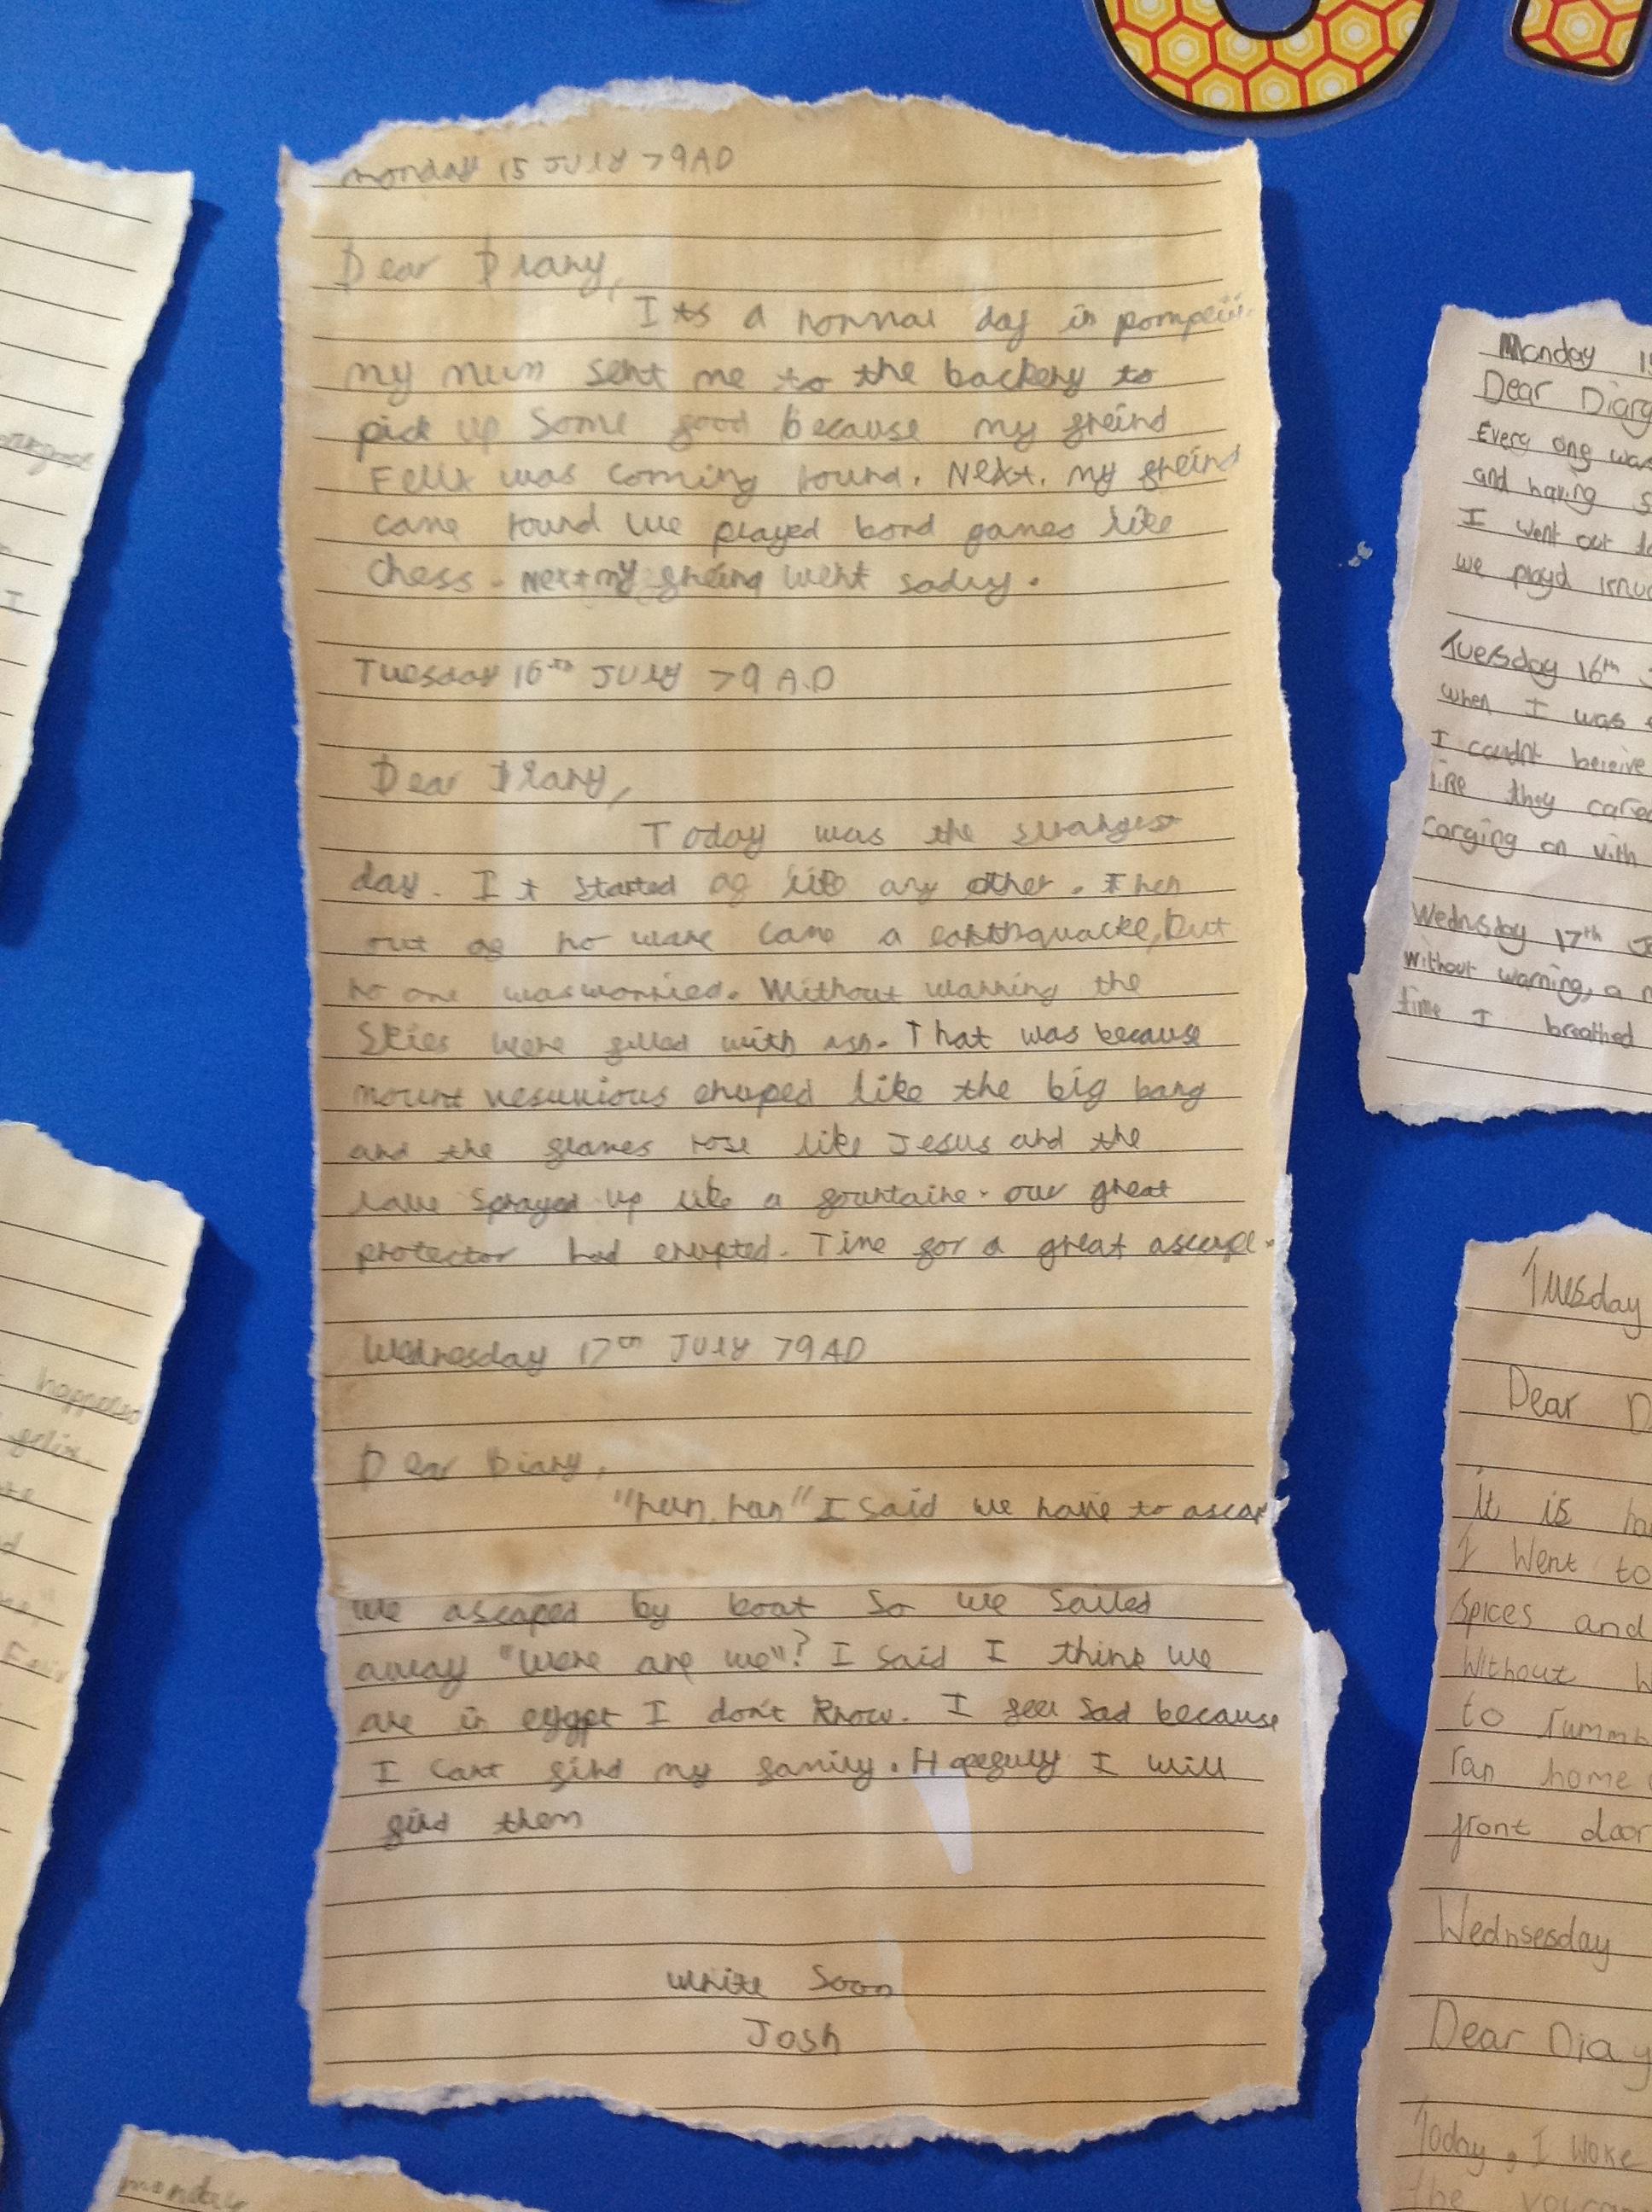 monday 15 JULY 79AD
Dear Diary,
Its a normal day in pompeii.
my mum sent me to the backery to
pick up some food because my freind
Felix was coming round. Next. my freind
came round we played bord games like
chess. Next my freind went sadly.
Tuesday 16th JULY 79 A.D
Dear Diary,
Today was the strangest
day. It started of like any other. Then
out of no ware came a earthquacke, but
no one was worried. Without warning the
skies were filled with ash. That was because
mount vesuvious eruped like the big bang
and the flames rose like Jesus and the
lava sprayed up like a fountaine. our great
protector had erupted. Time for a great ascape.
Wednesday 17th JULY 79AD
Dear Diary,
"run, run" I said we have to ascap
we ascaped by boat so we sailed
away "were are we"? I said I think we
are in egypt I don't know. I feel sad because
I cant find my family. Hopefully I will
find them
write soon
Josh
Monday
Dear Diary
Every one was
and having
I went out
we playd
Tuesday 16th
when I was
I
like they
on with
Wednsday 17th
without warning, a
time I breathed
Tuesday
Dear
it is
I went to
spices and
Without
to
ran home
front door
Wednsesday
Dear Diay
Today, I woke
the
I
happened
felix
Felix
monday